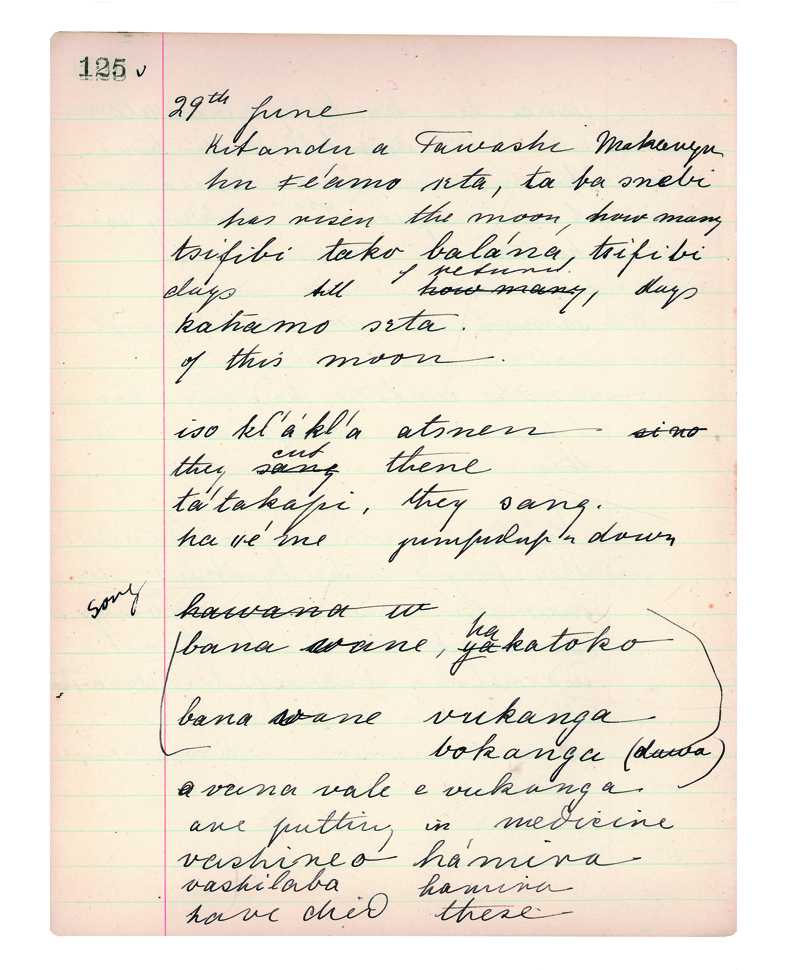 125 ✓
29th June
Kitandu a Tawashi
hu ꞓé'amo seta, ta ba snebi
has risen the moon, how many
tsifibi tako balána, tsifibi
return
days till how many, days
kahamo seta.
of this moon.
iso kl'ákl'a atsnen sino
cut
they sang there
tá'takapi, they sang.
ha vé me jumped up 'n down
song
hawana w
ha
bana wane, yakatoko
bana wane vukanga
bokanga (dawa)
avuna vale e vukanga
are putting in medicine
vashineo hámira
vashilaba hamira
have died these